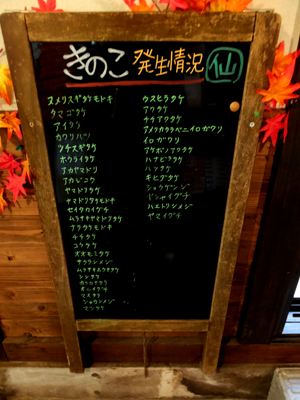 きのこ 発生情況 仙
ヌメリスギタケモドキ
タマゴタケ
アイタケ
カワリハツ
ツチスギタケ
ホウライタケ
アカヤマドリ
アカジコウ
ヤマドリタケ
ヤマドリタケモドキ
セイタカイグチ
ムラサキヤマドリタケ
ナラタケモドキ
チチタケ
コウタケ
オオモミタケ
マスタケ
ウスヒラタケ
アワタケ
チチアワタケ
アメリカウラベニイロガワリ
イロガワリ
アケボノアワタケ
ハナビラタケ
ハツタケ
キヒダタケ
ショウゲンジ
ドシャイグチ
ハエトリシメジ
ヤマイグチ